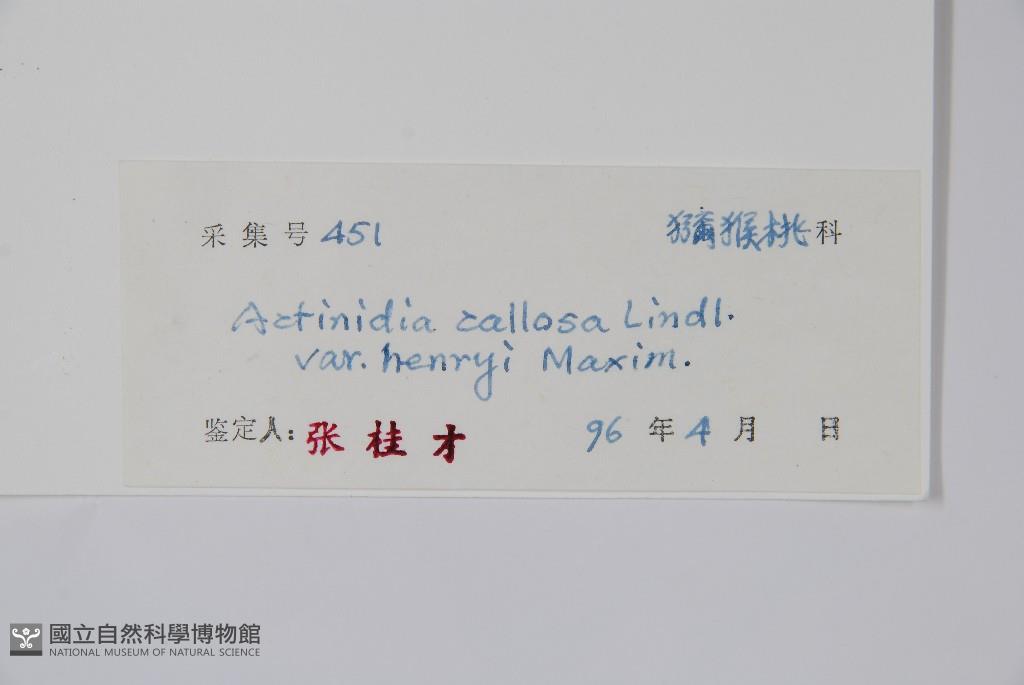 采集号 451 獼猴桃科
Actinidia callosa Lindl.
var. henryi Maxim.
鉴定人: 张桂才 96 年 4 月 日
國立自然科學博物館
NATIONAL MUSEUM OF NATURAL SCIENCE